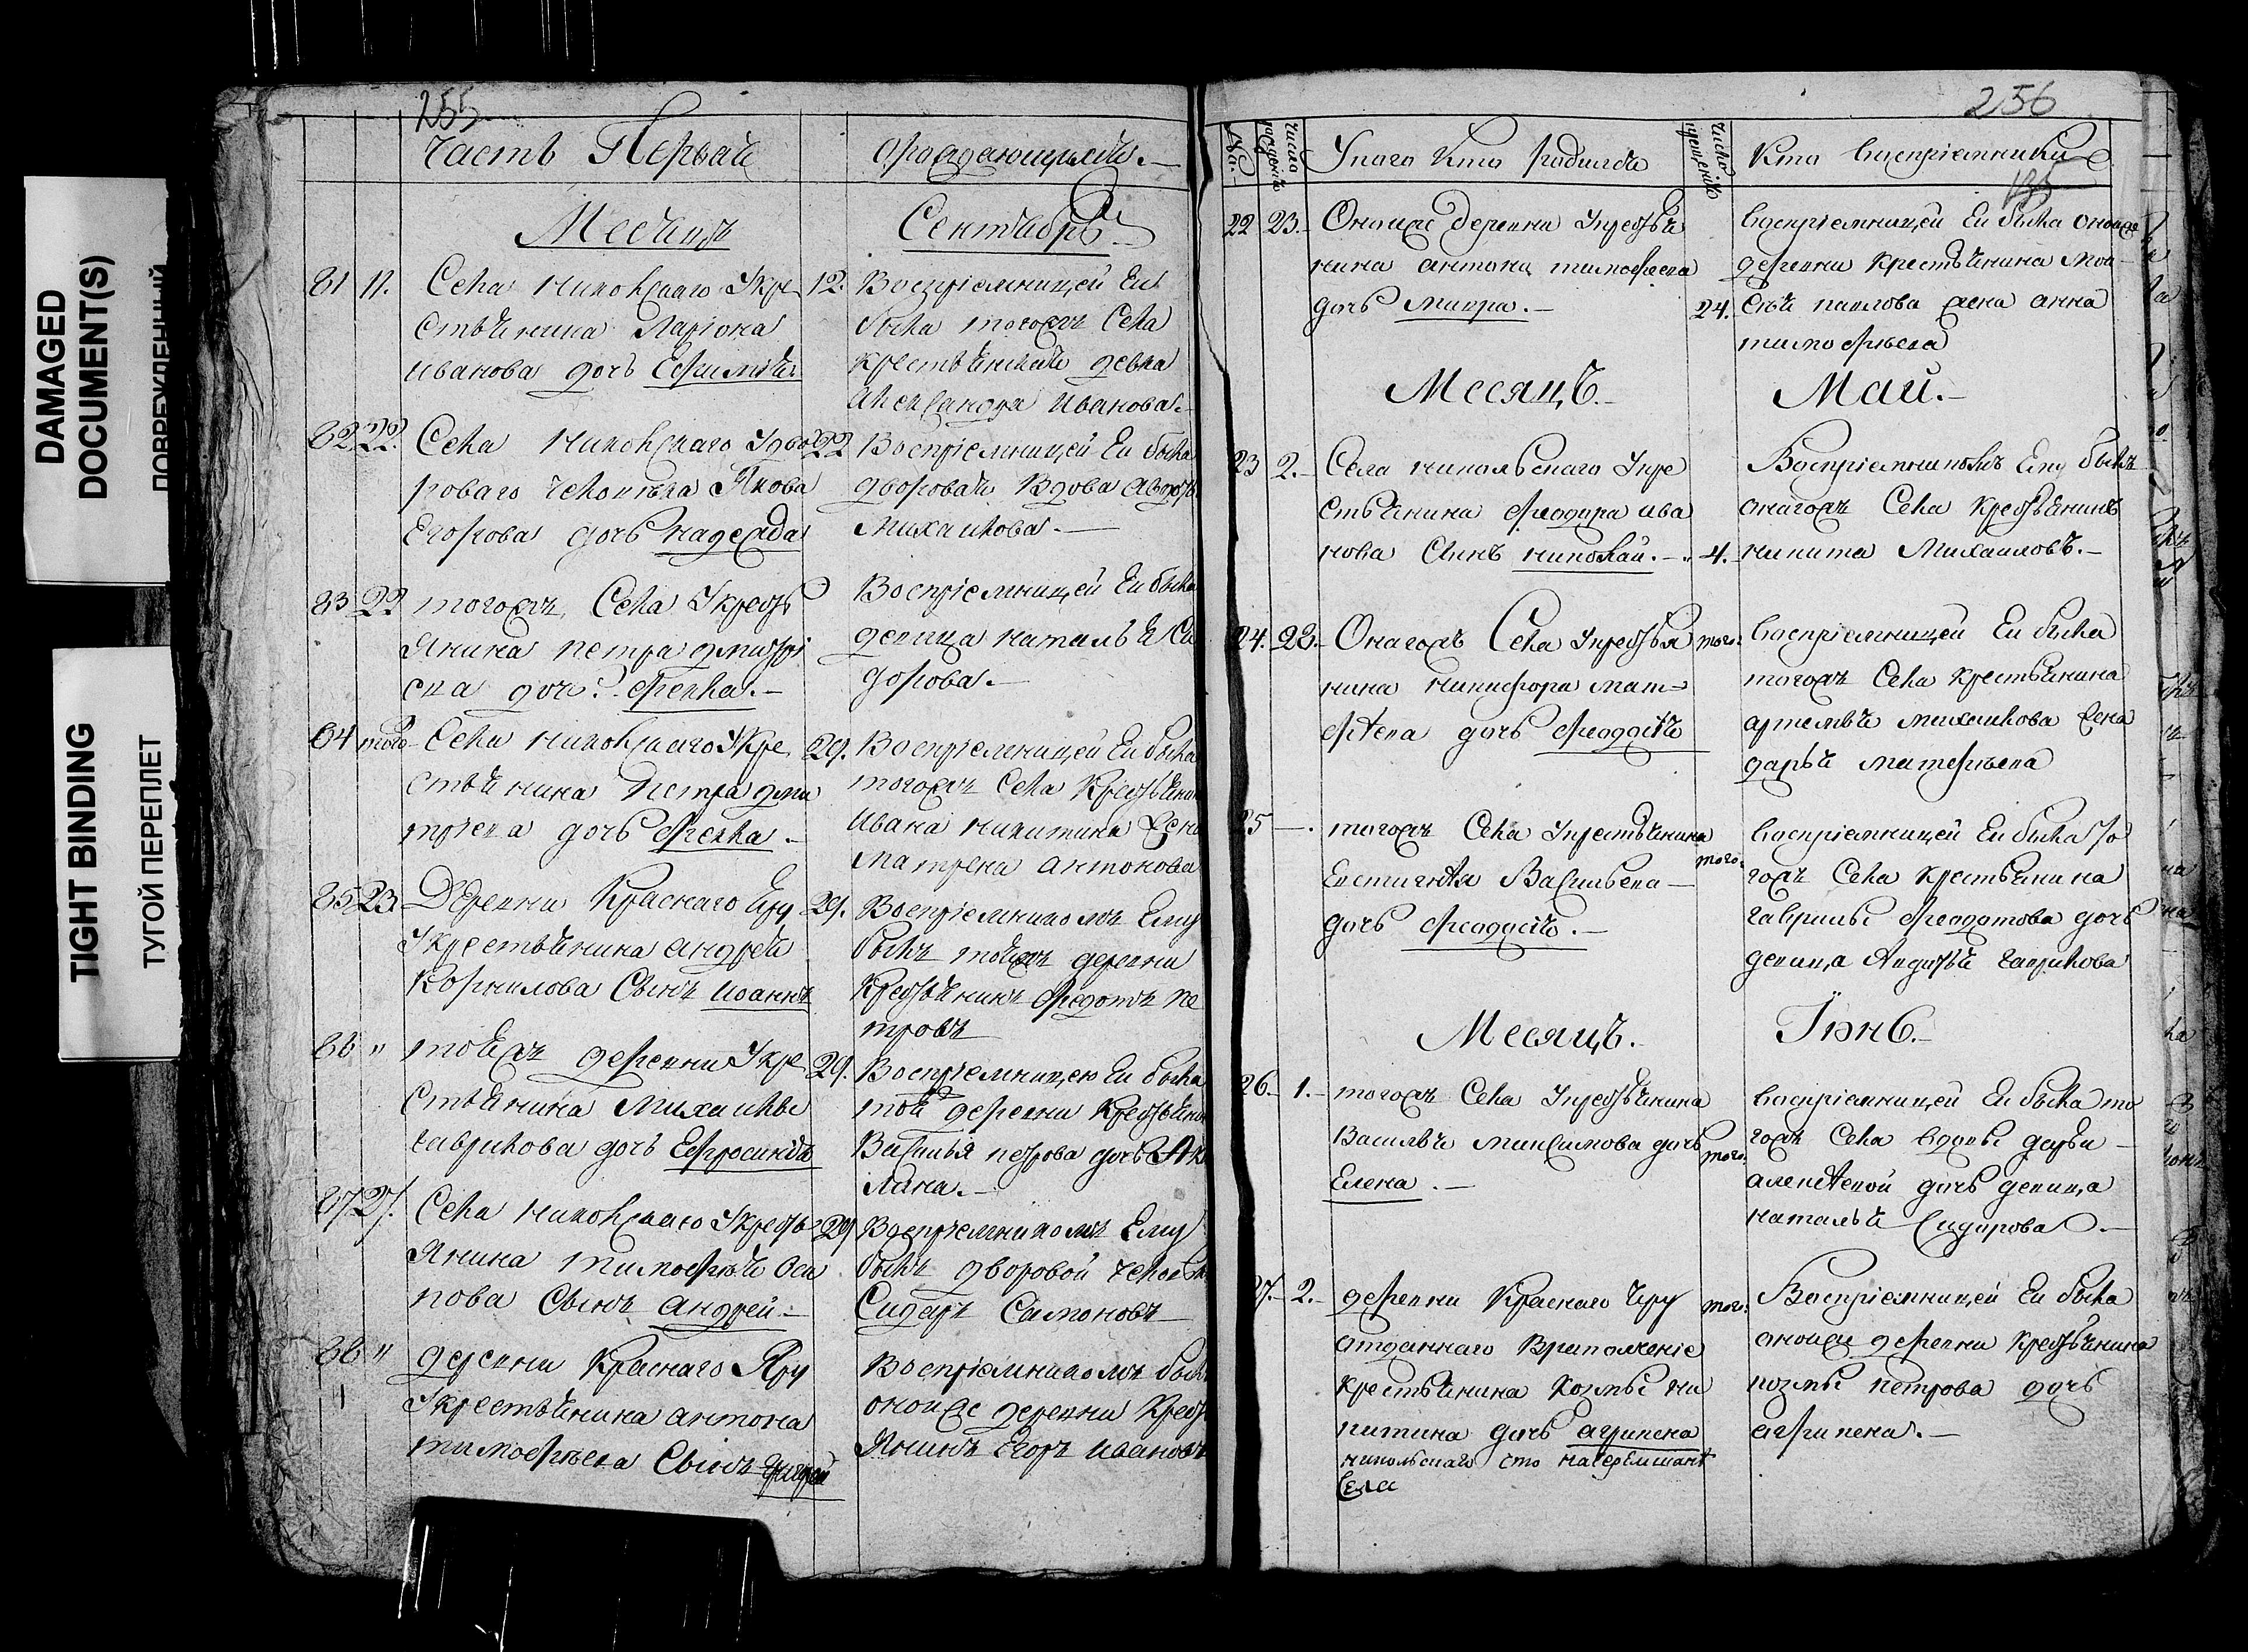 DAMAGED
DOCUMENT(S)
TIGHT BINDING
ТУГОЙ ПЕРЕПЛЕТ
255
Часть Первая
ораждающихъ.
Месецъ
Сентябрь
81 11. Села Никольскаго Укре
стьянина Лариона
Иванова дочь Ефимия
12. Воспріемницей Ей
была тогожъ села
крестьянская девка
Александра Иванова.
82 22. Села Никольскаго Удво
роваго человека Якова
Егорова дочь Надежда
22 Воспріемницей Ей была
дворовая вдова
Михаилова.
83 22 тогожъ Села Укресть
янина Петра Дмитрі
ева дочь Фекла.
Воспріемницей Ей была
девица Наталья Си
дорова.
84 того Села Никольскаго Укре
стьянина Петра Дми
тріева дочь Фекла.
29. Воспріемницей Ей была
тогожъ Села
Ивана Никитина жена
Матрена Антонова
85 23 Деревни Краснаго Яру
Укрестьянина Андрея
Корнилова Сынъ Иоаннъ
29. Воспріемникомъ Ему
былъ тояжъ деревни
Крестьянинъ Федотъ Пе
тровъ
86 " тояжъ деревни Укре
стьянина Михаилы
Гаврилова дочь Ефросинія
29. Воспріемницею Ей была
той деревни
Василья Петрова дочь
лина.
87 27. Села Никольскаго Укресть
янина Тимофея Оси
пова Сынъ Андрей
29 Воспріемникомъ Ему
былъ дворовой
Сидаръ Самоновъ
88 " деревни Краснаго Яру
Укрестьянина Антона
Тимофеева Сынъ
Воспріемникомъ былъ
оной же деревни Кресть
янинъ Егоръ Ивановъ
256
Унаго Кто родился
Кто воспріемники
22 23. Оной же деревни Укрестья
нина Антона Тимофеева
дочь Мавра.
Воспріемницей Ей была оной же
деревни Крестьянина Мои
24. сея Павлова жена Анна
Тимофеева
Месяцъ.
Май.
23 2. Села Никольскаго Укре
стьянина Феодора Ива
нова Сынъ Николай. 4.
Воспріемникомъ Ему былъ
онагожъ Села Крестьянинъ
Никита Михаиловъ.
24. 23. Онагожъ Села Укрестья того.
нина Никифора Мат
фѣева дочь Феодосія
Воспріемницей Ей была
тогожъ Села Крестьянина
Артемья Михаилова жена
Дарья Матефеева
25 тогожъ Села Укрестьянина того.
Евстигнѣя Васильева
дочь Феодосія.
Воспріемницей Ей была то
гожъ Села Крестьянина
Гаврилы Феодотова дочь
девица Гаврилова
Месяцъ.
Іюнь.
26. 1. тогожъ Села Укрестьянина
Василья Максимова дочь того.
Елена.
Воспріемницей Ей была то
гожъ Села вдовы Дарьи
Алексѣевой дочь девица
Наталья Сидорова.
27. 2. деревни Краснаго Яру того.
отданнаго
крестьянина Козмы Ни
китина дочь Агрипена
Никольскаго
Села
Воспріемницей Ей была
оной же деревни Крестьянина
Козмы Петрова дочь
Агрипена.